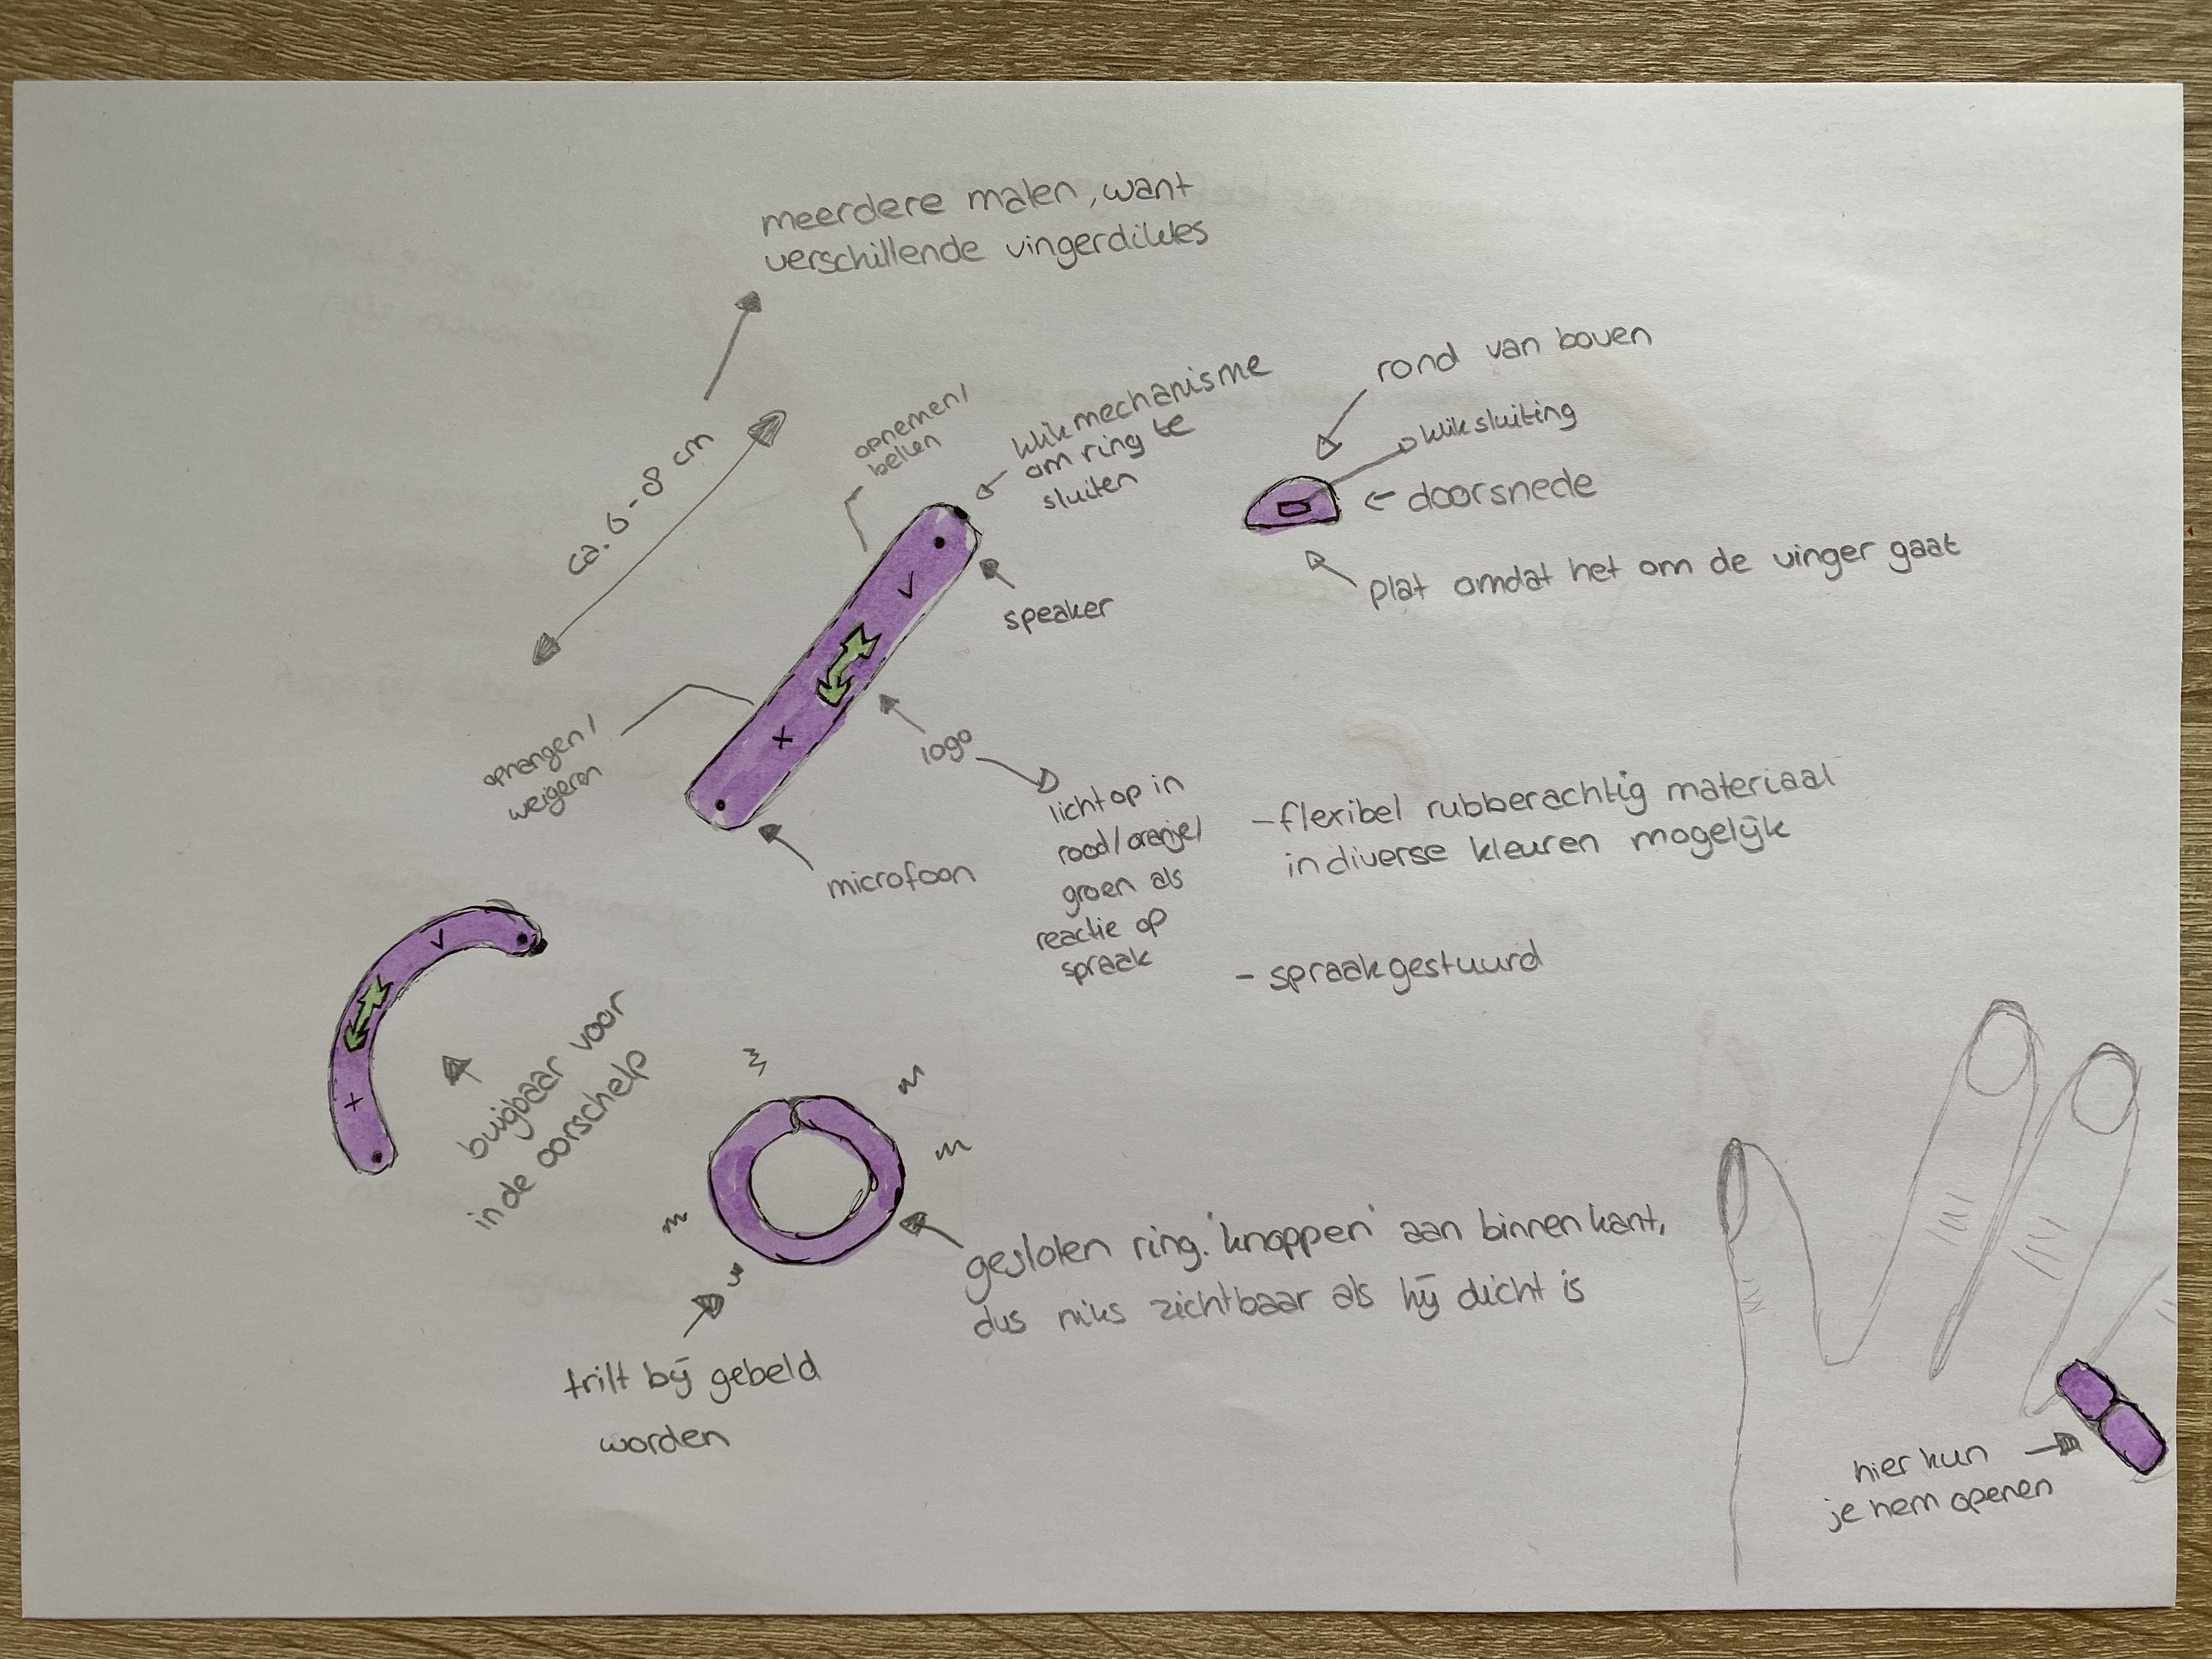 meerdere malen, want
verschillende vingerdiktes
ca. 6-8 cm
opnemen/
bellen
klikmechanisme
om ring te
sluiten
rond van boven
kliksluiting
doorsnede
plat omdat het om de vinger gaat
speaker
ophangen/
weigeren
logo
licht op in
rood/oranje/
groen als
reactie op
spraak
microfoon
-flexibel rubberachtig materiaal
in diverse kleuren mogelijk
- spraakgestuurd
buigbaar voor
in de oorschelp
gesloten ring. 'knoppen' aan binnenkant,
dus niks zichtbaar als hij dicht is
trilt bij gebeld
worden
hier kun
je hem openen